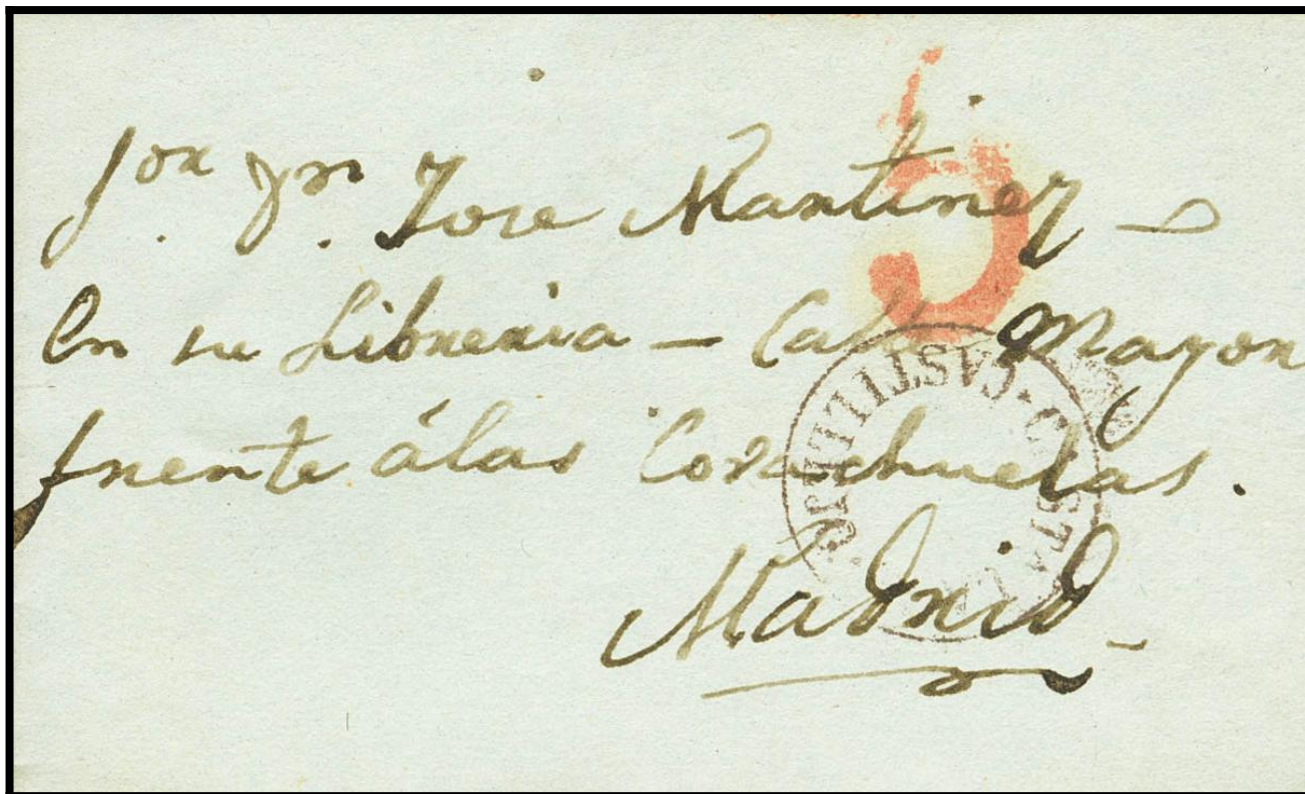 Sor. Dn. Jose Martinez —
En su Libreria — Calle Mayor
frente á las Covachuelas.
Madrid
5